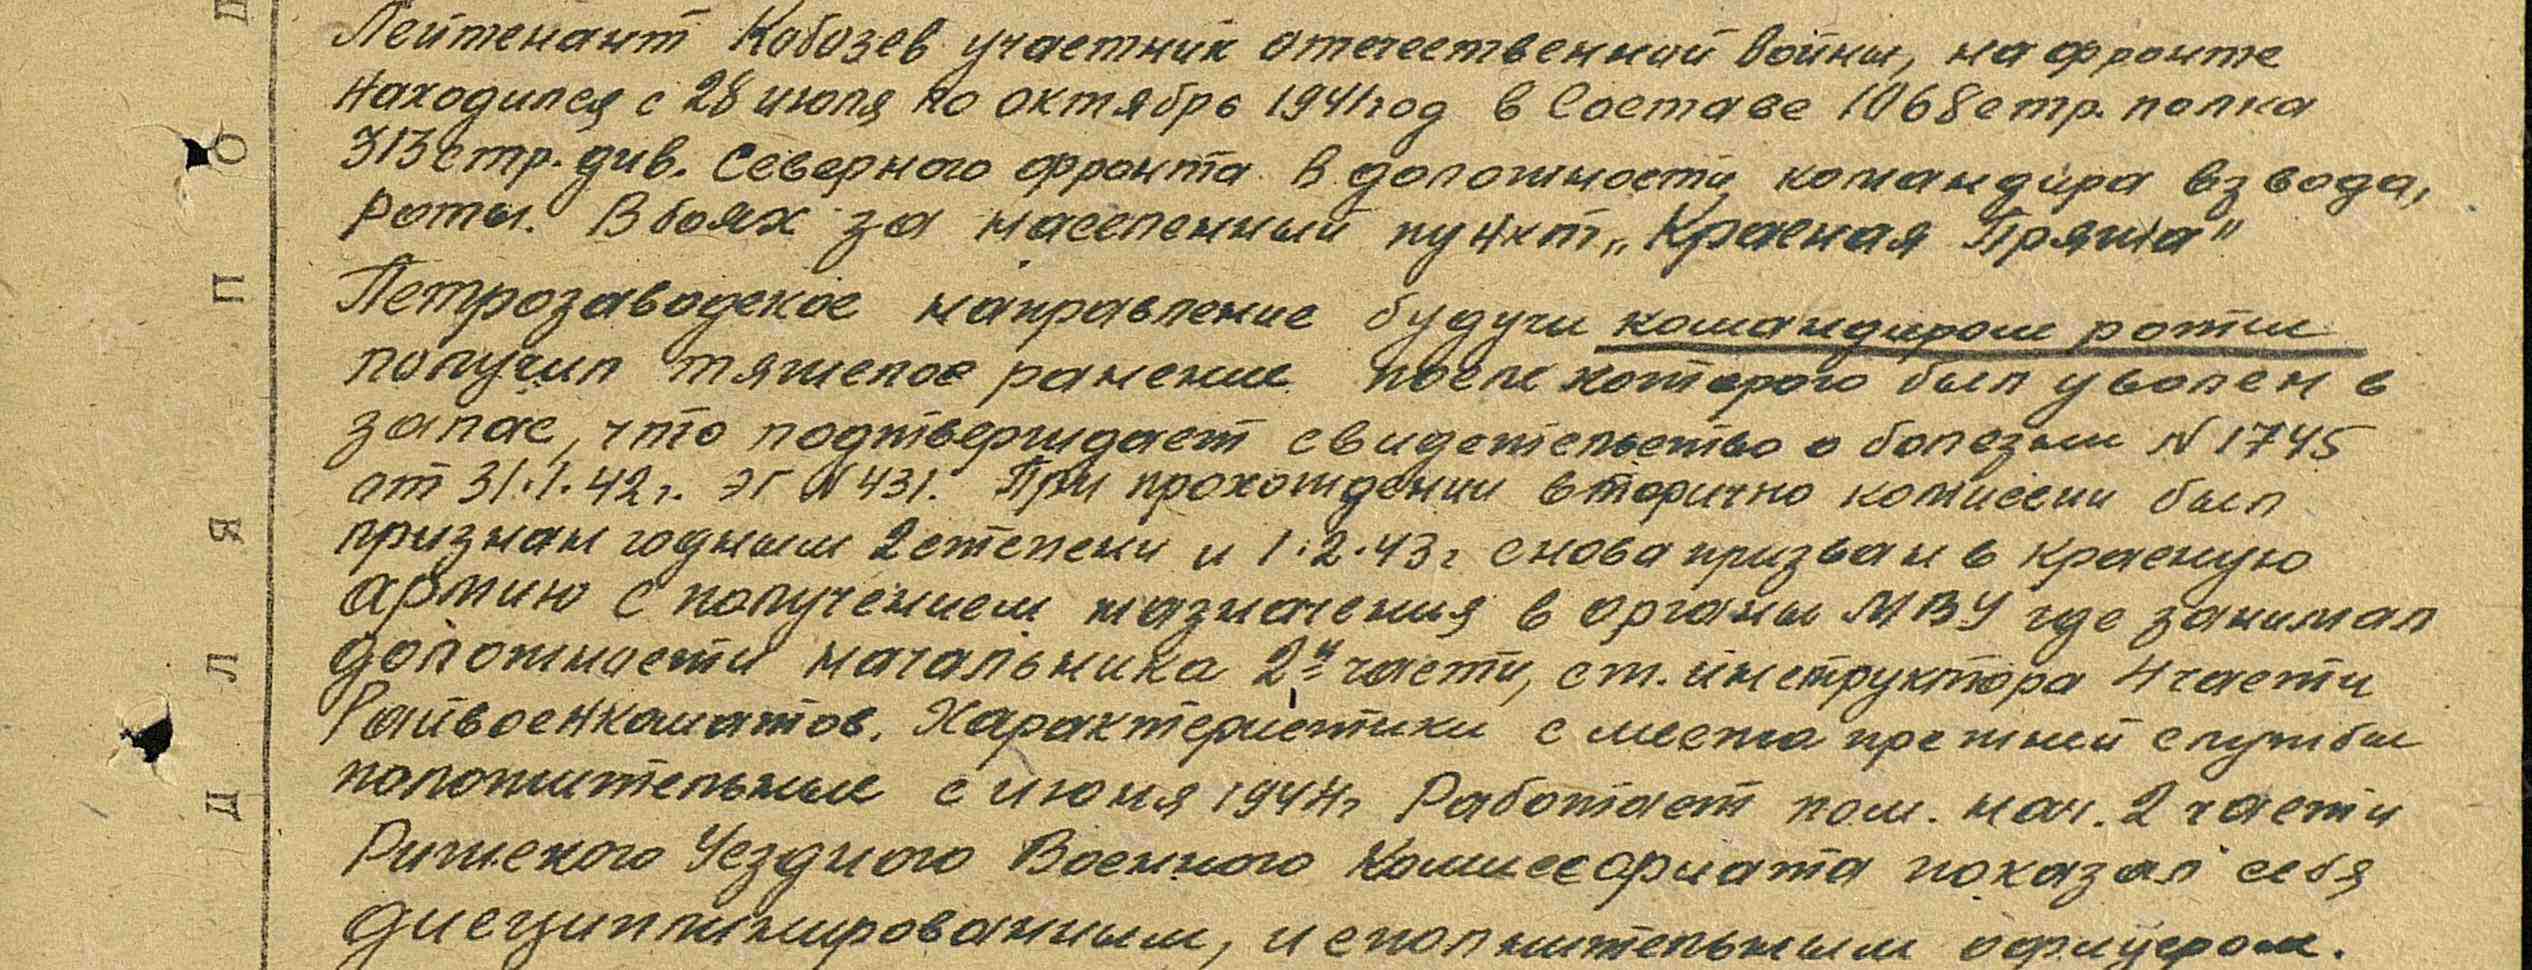 Лейтенант Кобозев участник отечественной войны, на фронте
находился с 28 июля по октябрь 1941 год в составе 1068 стр. полка
313 стр. див. Северного фронта в должности командира взвода,
роты. В боях за населенный пункт „Красная Пряжа"
Петрозаводское направление будучи командиром роты
получил тяжелое ранение после которого был уволен в
запас, что подтверждает свидетельство о болезни N 1745
от 31.1.42 г. ЭГ N 431. При прохождении вторично комиссии был
признан годным 2 степени и 1.2.43 г снова призван в красную
армию с получением назначения в органы МВУ где занимал
должности начальника 2й части, ст. инструктора 4 части
Райвоенкоматов. Характеристики с места прежней службы
положительные с июня 1944 г Работает пом. нач. 2 части
Рижского Уездного Военного Комиссариата показал себя
дисциплинированным, исполнительным офицером.
Д Л Я П О Д